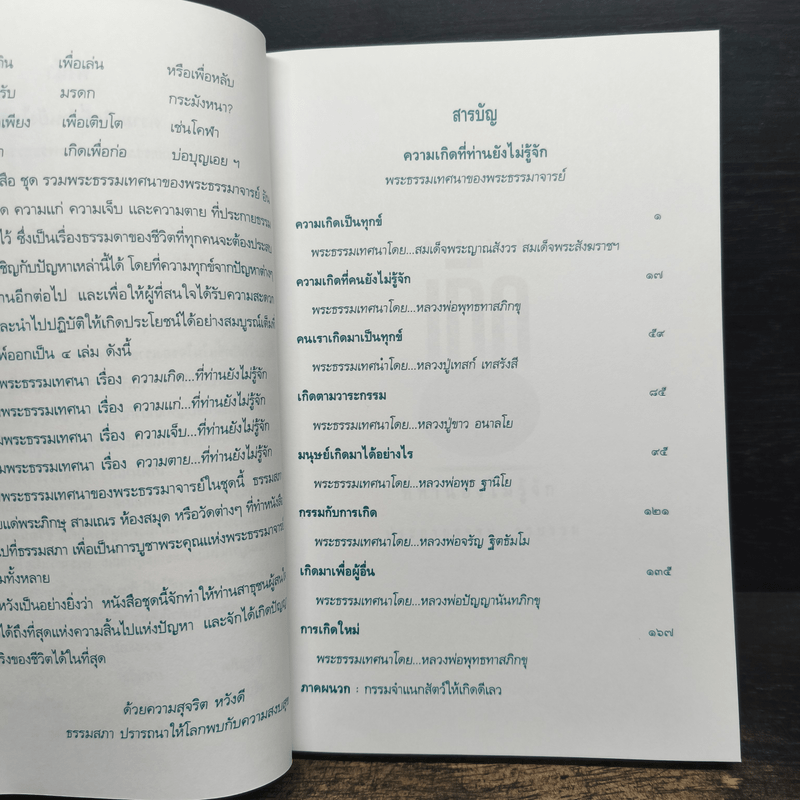 เพื่อเล่น หรือเพื่อหลับ
มรดก กระมังหนา?
เพื่อเติบโต เช่นโคฬา
เกิดเพื่อก่อ บ่อบุญเอย ฯ
ชุด รวมพระธรรมเทศนาของพระธรรมาจารย์ อัน
ความแก่ ความเจ็บ และความตาย ที่ประกายธรรม
ไว้ ซึ่งเป็นเรื่องธรรมดาของชีวิตที่ทุกคนจะต้องประสบ
กับปัญหาเหล่านี้ได้ โดยที่ความทุกข์จากปัญหาต่างๆ
อีกต่อไป และเพื่อให้ผู้ที่สนใจได้รับความสะดวก
และนำไปปฏิบัติให้เกิดประโยชน์ได้อย่างสมบูรณ์เต็มที่
ออกเป็น ๔ เล่ม ดังนี้
พระธรรมเทศนา เรื่อง ความเกิด...ที่ท่านยังไม่รู้จัก
พระธรรมเทศนา เรื่อง ความแก่...ที่ท่านยังไม่รู้จัก
พระธรรมเทศนา เรื่อง ความเจ็บ...ที่ท่านยังไม่รู้จัก
พระธรรมเทศนา เรื่อง ความตาย...ที่ท่านยังไม่รู้จัก
พระธรรมเทศนาของพระธรรมาจารย์ในชุดนี้ ธรรมสภา
แด่พระภิกษุ สามเณร ห้องสมุด หรือวัดต่างๆ ที่ทำหนังสือ
ไปที่ธรรมสภา เพื่อเป็นการบูชาพระคุณแห่งพระธรรมาจารย์
ทั้งหลาย
หวังเป็นอย่างยิ่งว่า หนังสือชุดนี้จักทำให้ท่านสาธุชนผู้สนใจ
ได้ถึงที่สุดแห่งความสิ้นไปแห่งปัญหา และจักได้เกิดปัญญา
ของชีวิตได้ในที่สุด
ด้วยความสุจริต หวังดี
ธรรมสภา ปรารถนาให้โลกพบกับความสงบสุข
สารบัญ
ความเกิดที่ท่านยังไม่รู้จัก
พระธรรมเทศนาของพระธรรมาจารย์
ความเกิดเป็นทุกข์ ๑
พระธรรมเทศนาโดย...สมเด็จพระญาณสังวร สมเด็จพระสังฆราชฯ
ความเกิดที่คนยังไม่รู้จัก ๑๗
พระธรรมเทศนาโดย...หลวงพ่อพุทธทาสภิกขุ
คนเราเกิดมาเป็นทุกข์ ๕๙
พระธรรมเทศนำโดย...หลวงปู่เทสก์ เทสรังสี
เกิดตามวาระกรรม ๘๕
พระธรรมเทศนาโดย...หลวงปู่ขาว อนาลโย
มนุษย์เกิดมาได้อย่างไร ๙๕
พระธรรมเทศนาโดย...หลวงพ่อพุธ ฐานิโย
กรรมกับการเกิด ๑๒๑
พระธรรมเทศนาโดย...หลวงพ่อจรัญ ฐิตธัมโม
เกิดมาเพื่อผู้อื่น ๑๓๕
พระธรรมเทศนาโดย...หลวงพ่อปัญญานันทภิกขุ
การเกิดใหม่ ๑๖๗
พระธรรมเทศนาโดย...หลวงพ่อพุทธทาสภิกขุ
ภาคผนวก : กรรมจำแนกสัตว์ให้เกิดดีเลว